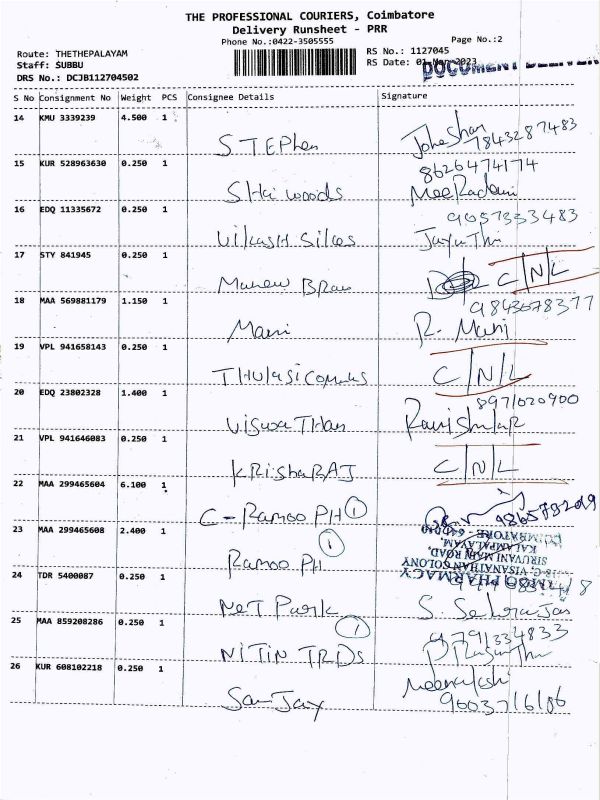 THE PROFESSIONAL COURIERS, Coimbatore
Delivery Runsheet - PRR
Phone No.:0422-3505555
Page No.:2
Route: THETHEPALAYAM
RS No.: 1127045
Staff: SUBBU
RS Date: 01-Mar-2023
DRS No.: DCJB112704502
DOCUMENT
S No Consignment No Weight PCS Consignee Details Signature
14 KMU 3339239 4.500 1
STEPhen
7843287483
15 KUR 528963630 0.250 1
8626474174
Shai woods
16 EDQ 11335672 0.250 1
9057333483
Vikash Silks
17 STY 841945 0.250 1
C/N/L
18 MAA 569881179 1.150 1
9843678377
Mani R. Mani
19 VPL 941658143 0.250 1
C/N/L
20 EDQ 23802328 1.400 1
8971020900
21 VPL 941646083 0.250 1
KRishaRAJ C/N/L
22 MAA 299465604 6.100 1
C-Ramoo PH 1
23 MAA 299465608 2.400 1
1
Ramoo PH
COIMBATORE
KALAMPALAYAM,
SIRUVANI MAIN ROAD,
VISANATHAN COLONY
PHARMACY
24 TDR 5400087 0.250 1
Net Park
25 MAA 859208286 0.250 1
1
9791334833
NITIN TRDs
26 KUR 608102218 0.250 1
Meenakshi
SanJay 9003716106